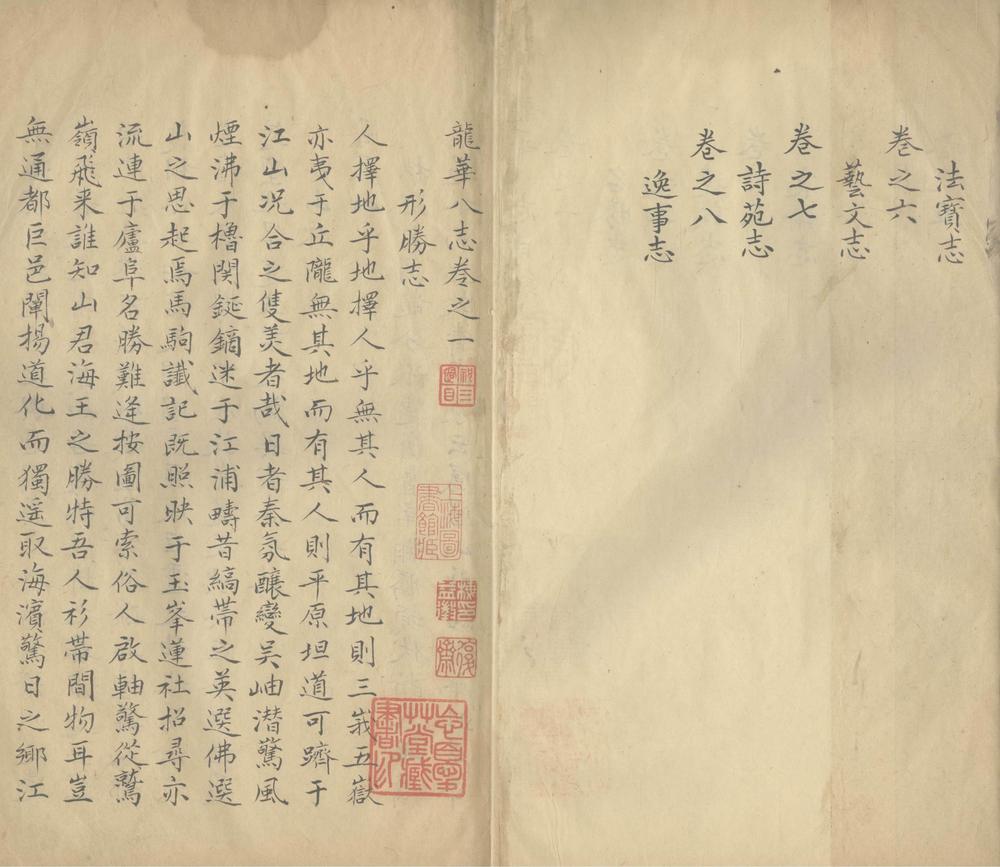 法寶志
卷之六
藝文志
卷之七
詩苑志
卷之八
逸事志
龍華八志卷之一
形勝志
人擇地乎地擇人乎無其人而有其地則三峩五嶽
亦夷于丘隴無其地而有其人則平原坦道可躋于
江山况合之隻美者哉日者秦氛釀變吴岫潜驚風
煙沸于櫓関鋋鏑迷于江浦疇昔縞帶之英選佛選
山之思起焉馬駒讖記既照映于玉峯蓮社招尋亦
流連于廬阜名勝難逢按圖可索俗人啟軸驚從鷲
嶺飛来誰知山君海王之勝特吾人衫帶間物耳豈
無通都巨邑闡揚道化而獨遥取海濵驚日之鄉江
上海圖書館藏